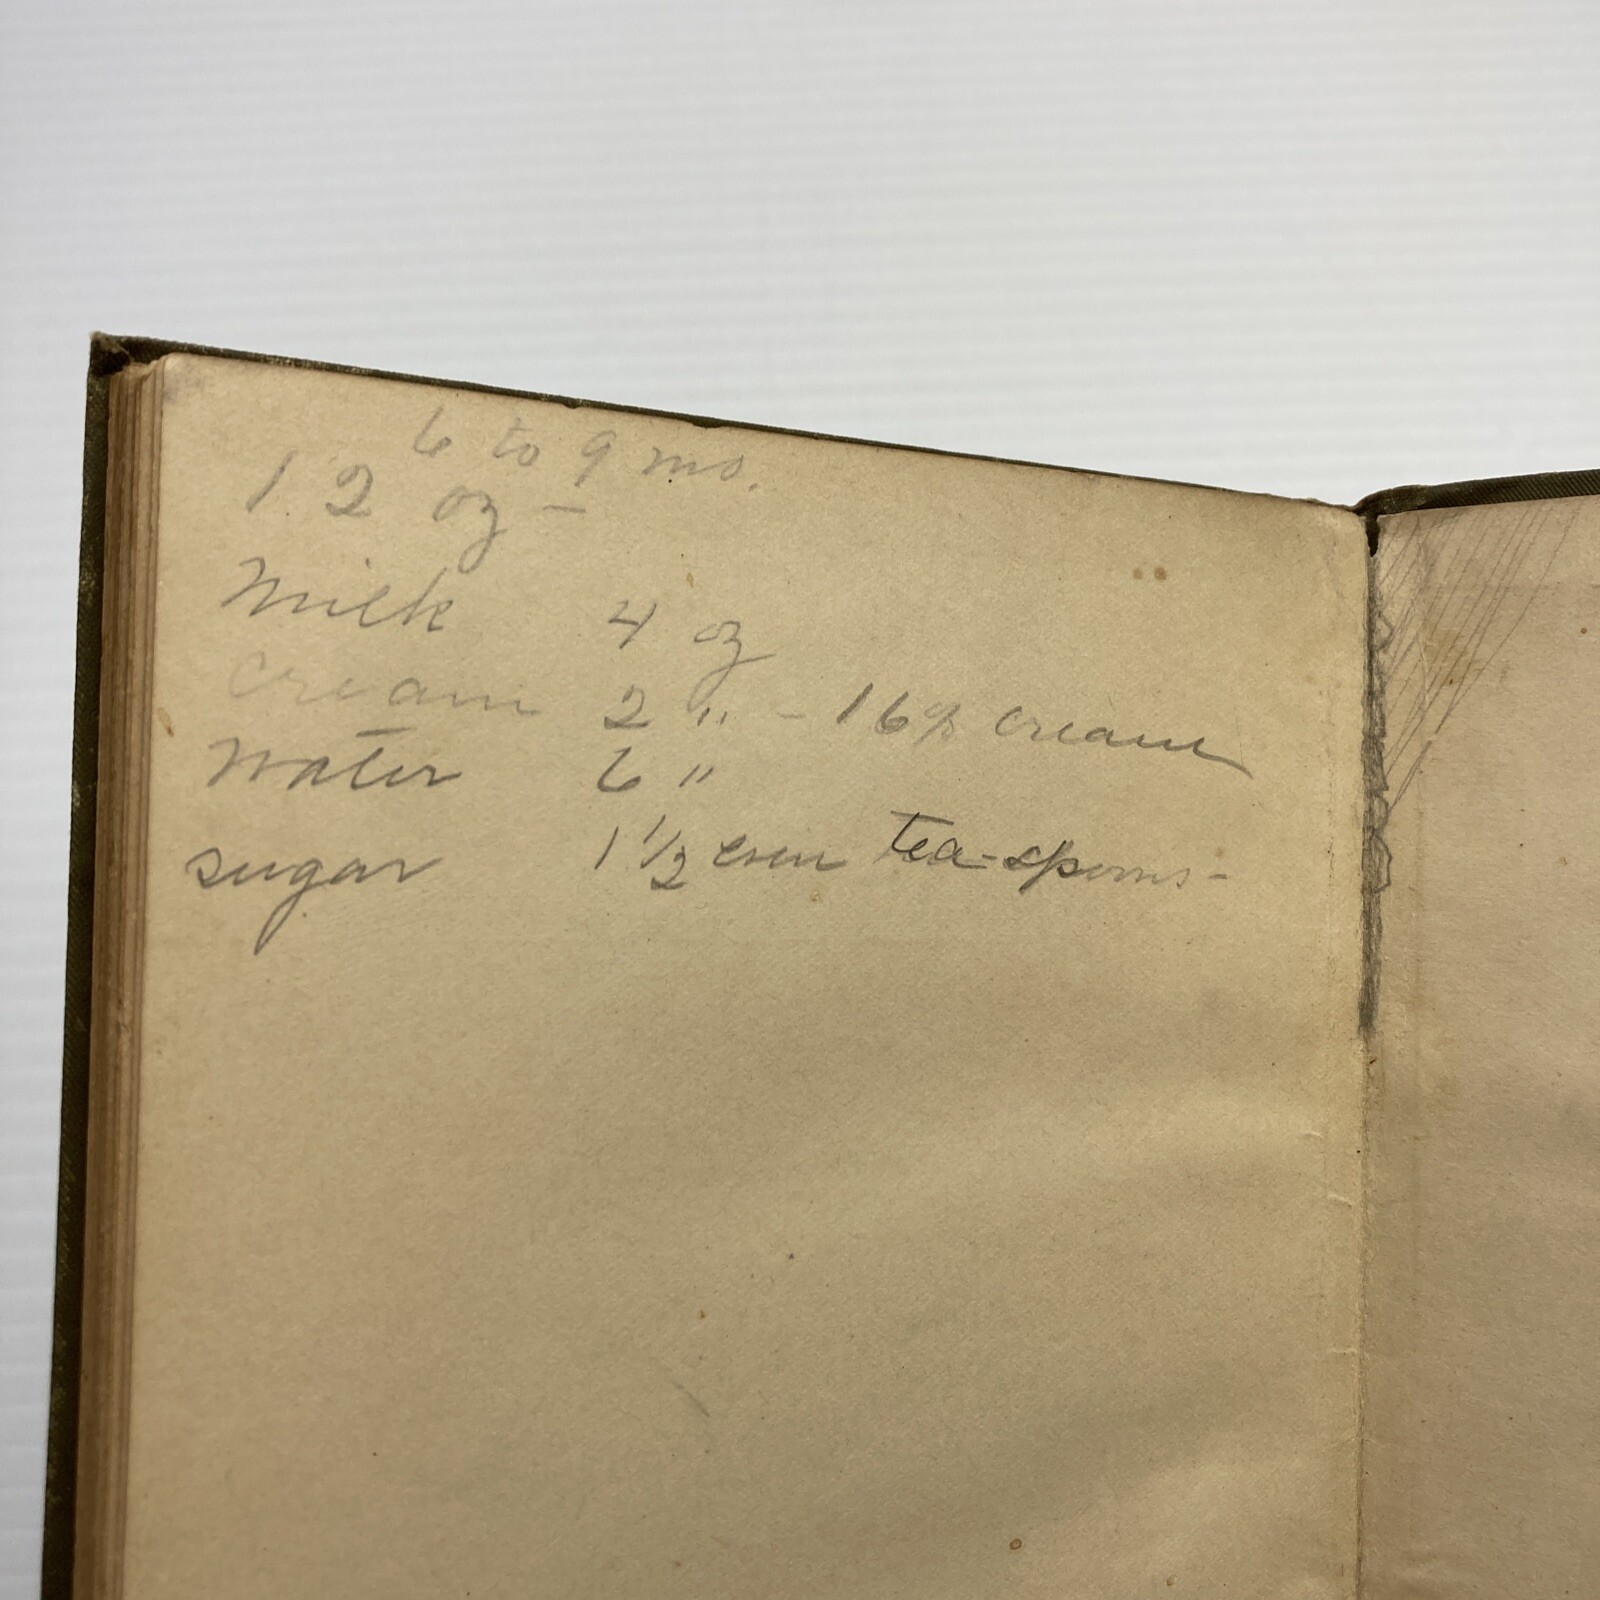 6 to 9 mo.
12 oz -
Milk 4 oz
cream 2 " - 16% cream
Water 6 "
sugar 1 1/2 even tea-spoons -